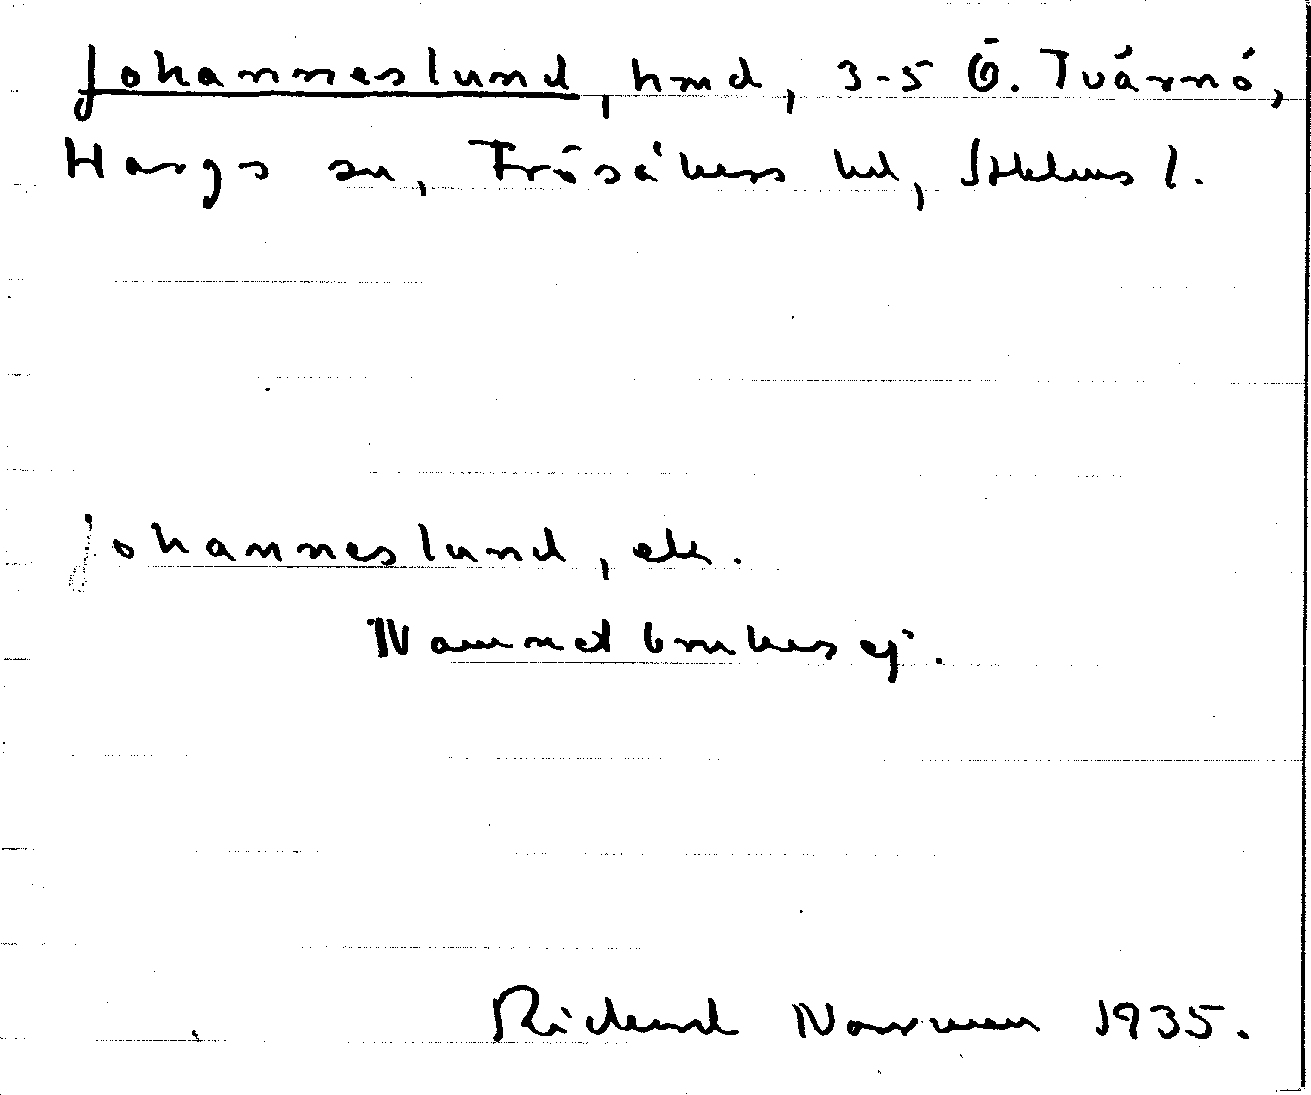 Johanneslund, hmd, 3-5 Ö. Tvärnö,
Hargs sn, Frösåkers hd, Sthlms l.
Johanneslund, etc.
Namnet brukas ej.
Rickard Norrman 1935.